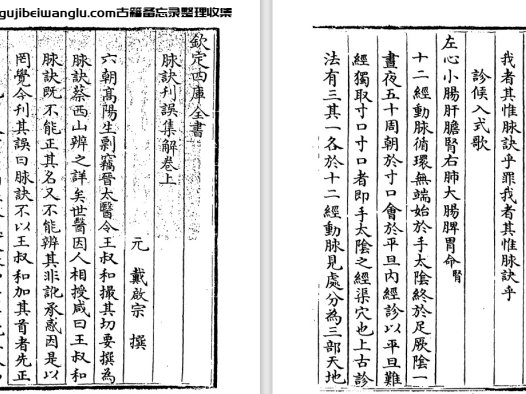 gujibeiwanglu.com古籍备忘录整理收集
欽定四庫全書
脉訣刊誤集解卷上
元 戴啟宗 撰
六朝髙陽生剽竊晉太醫令王叔和撮其切要撰為
脉訣蔡西山辨之詳矣世醫因人相授咸曰王叔和
脉訣既不能正其名又不能辨其非訛承惑固是以
罔覺今刋其誤曰脉訣不以王叔和加其首者先正
我者其惟脉訣乎罪我者其惟脉訣乎
診候入式歌
左心小腸肝膽腎右肺大腸脾胃命腎
十二經動脉循環無端始於手太陰終於足厥陰一
晝夜五十周朝於寸口會於平旦内經診以平旦難
經獨取寸口寸口者即手太陰之經渠穴也上古診
法有三其一各於十二經動脉見處分為三部天地